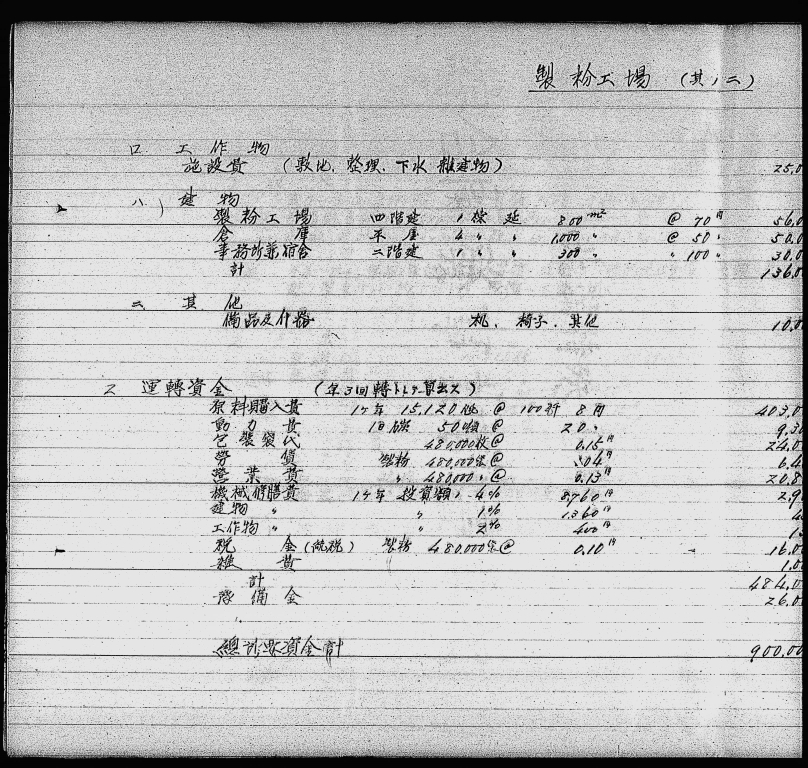 製粉工場 (其ノ二)
ロ. 工作物
施設費 (敷地. 整理. 下水 雜建物) 25,0
ハ) 建物
製粉工場 四階建 1棟 延 800m² @ 70円 56,0
倉庫 平屋 4 〃 〃 1,000 〃 @ 50 〃 50,0
事務所兼宿舎 二階建 1 〃 〃 300 〃 〃 100 〃 30,0
計 136,0
ニ. 其他
備品及什器 机. 椅子. 其他 10,0
2 運轉資金 (年3回轉トシテ算出ス)
原料購入費 1ヶ年 15,120 @ 100斤 8円 403,0
動力費 50噸 @ 20 〃 9,3
包裝袋代 480,000枚@ 0.15円 24,0
勞賃 製粉 480,000袋@ .04円 6,4
營業費 〃 480,000 〃 @ 0.13円 20,8
機械修膳費 1ヶ年 投資額ノ 4% 8,760円 2,9
建物 〃 〃 1% 1,360円 4
工作物 〃 〃 2% 400円 1
税金 (統税) 製粉 480,000袋@ 0.10円 16,0
雜費 1,0
計 484,0
豫備金 26,0
總所要資金計 900,00